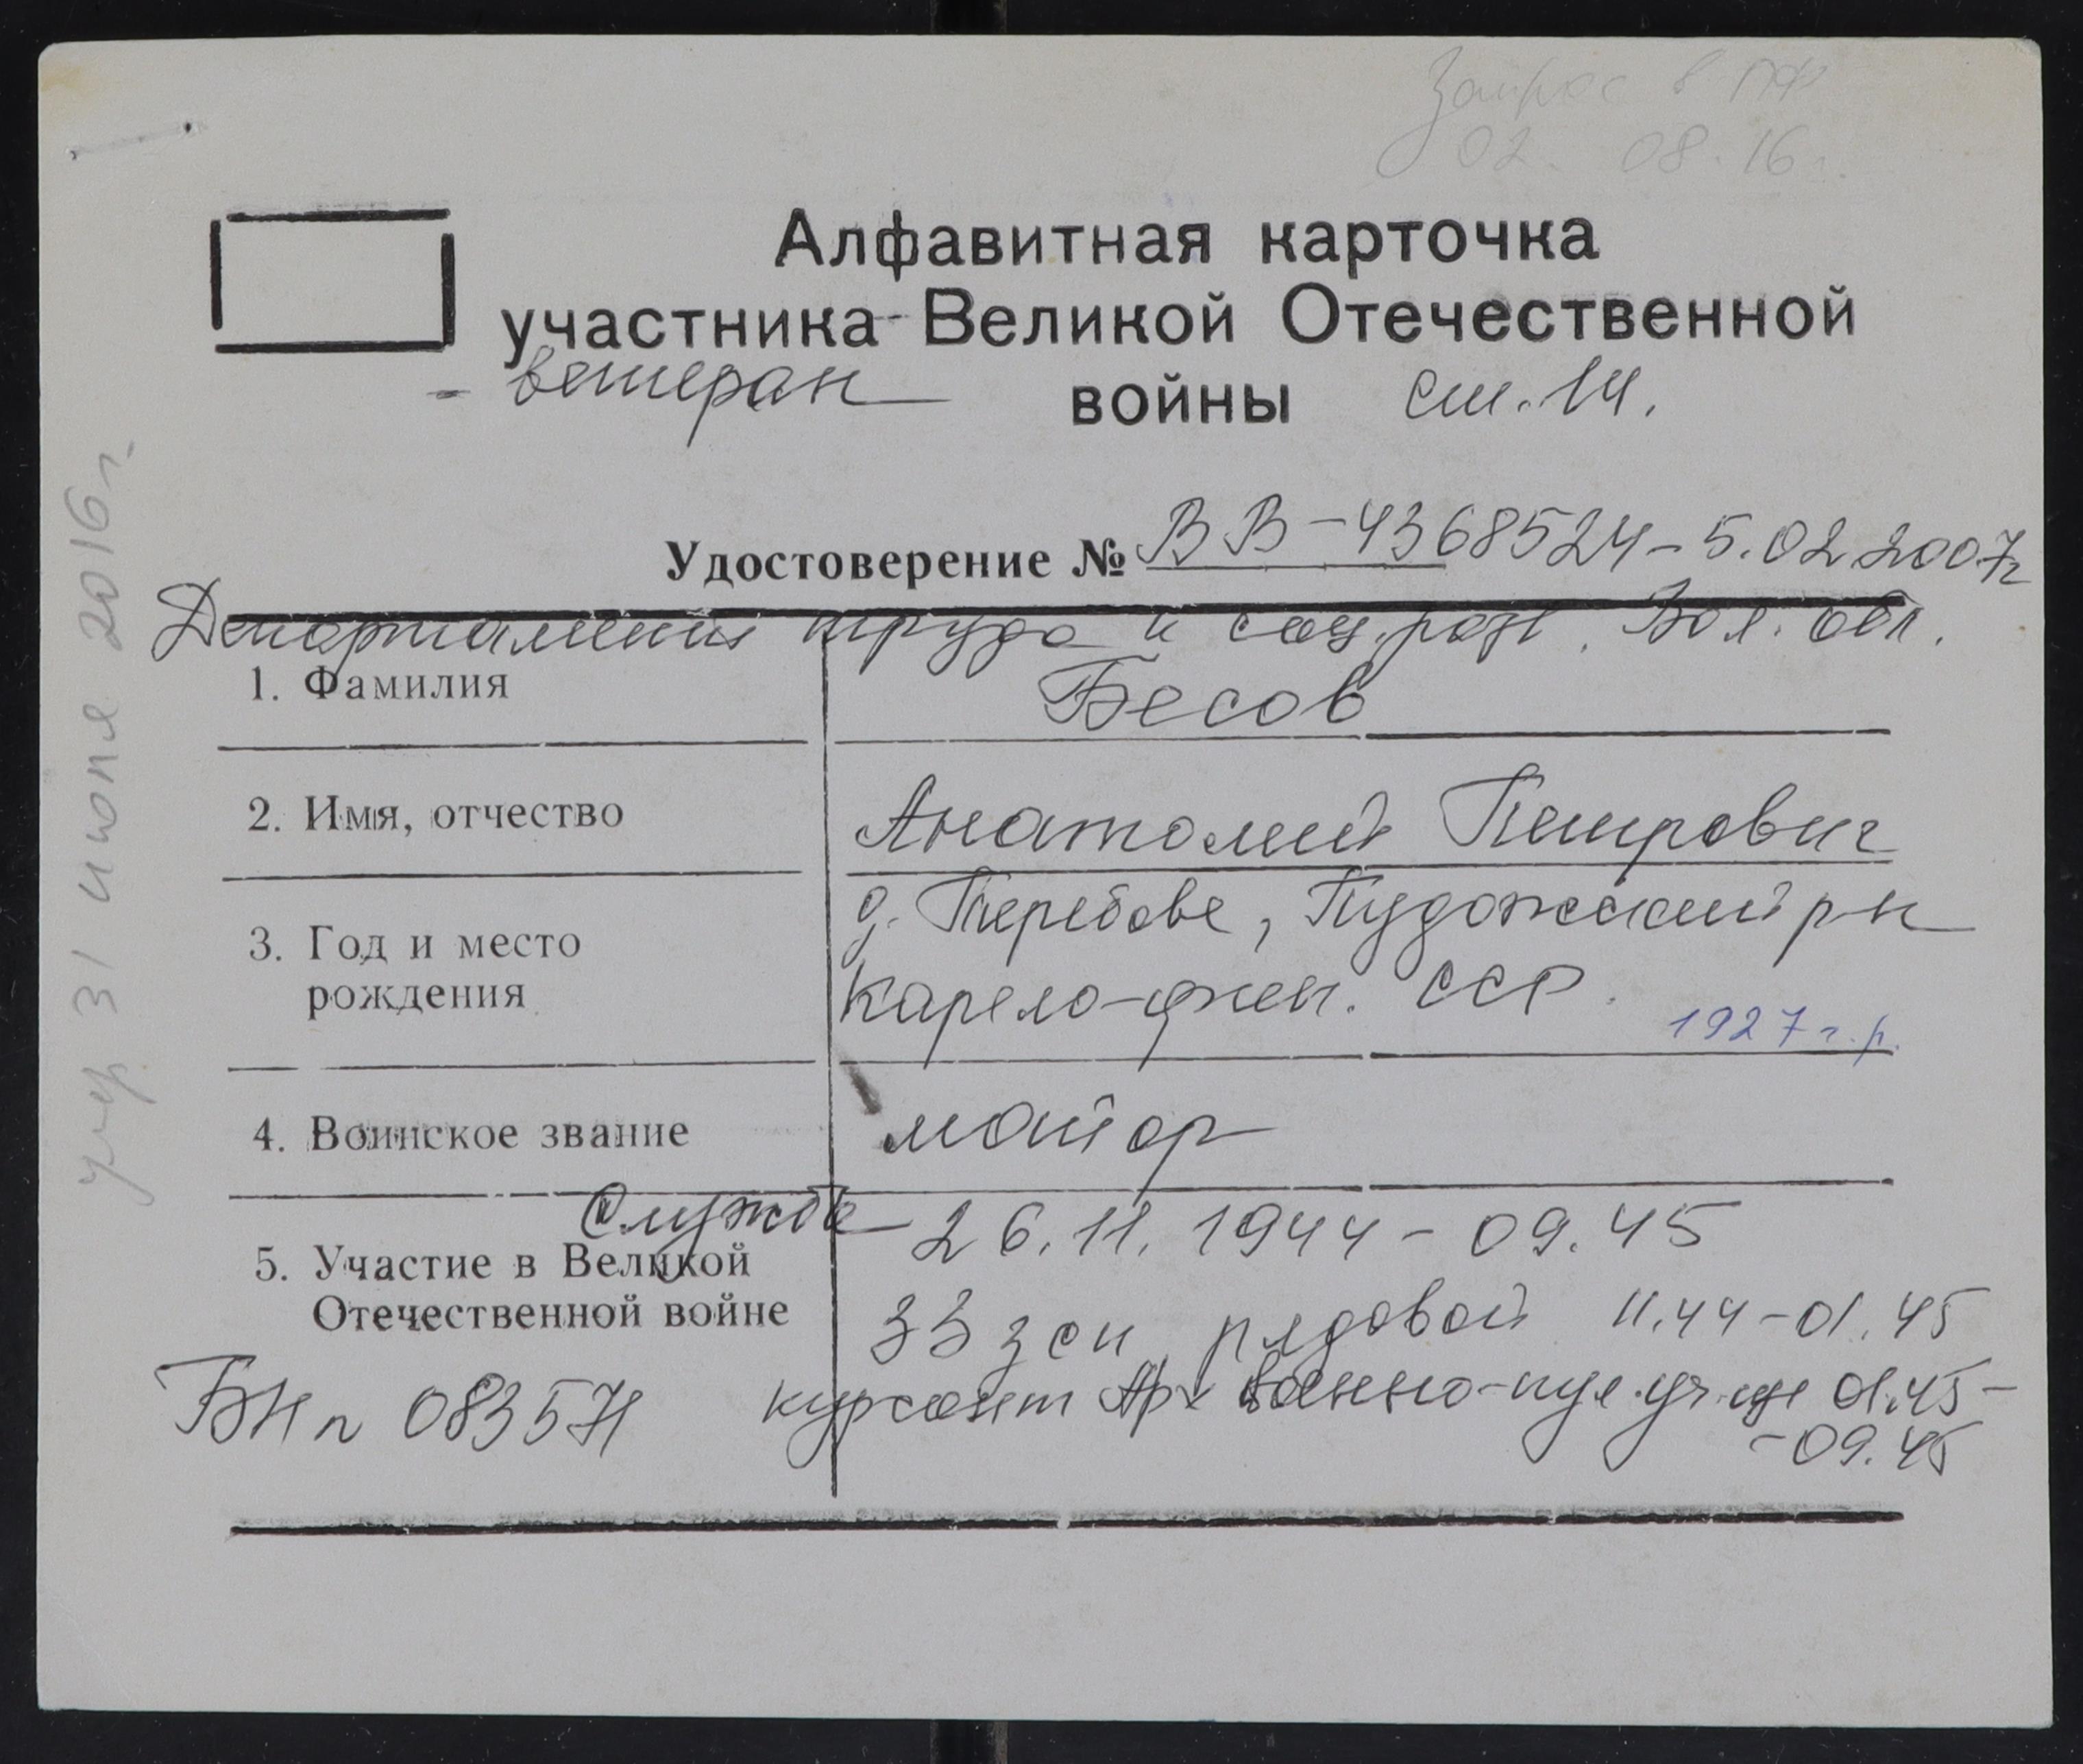 Запрос в ПФ
02. 08. 16 г.
Алфавитная карточка
участника Великой Отечественной
- ветеран войны ст. 14.
Удостоверение № ВВ-4368524-5.02 2007г
Департамент труда и соц. разв. Вол. обл.
1. Фамилия Бесов
2. Имя, отчество Анатолий Петрович
3. Год и место рождения д. Теребове, Пудожский р-н
Карело-фин. ССР. 1927 г.р.
4. Воинское звание майор
Служба 26.11.1944 - 09.45
5. Участие в Великой
Отечественной войне 33 зсп рядовой 11.44-01.45
БН № 083571 курсант Арх военно-пул. уч-ще 01.45-
-09.45
умер 31 июля 2016 г.